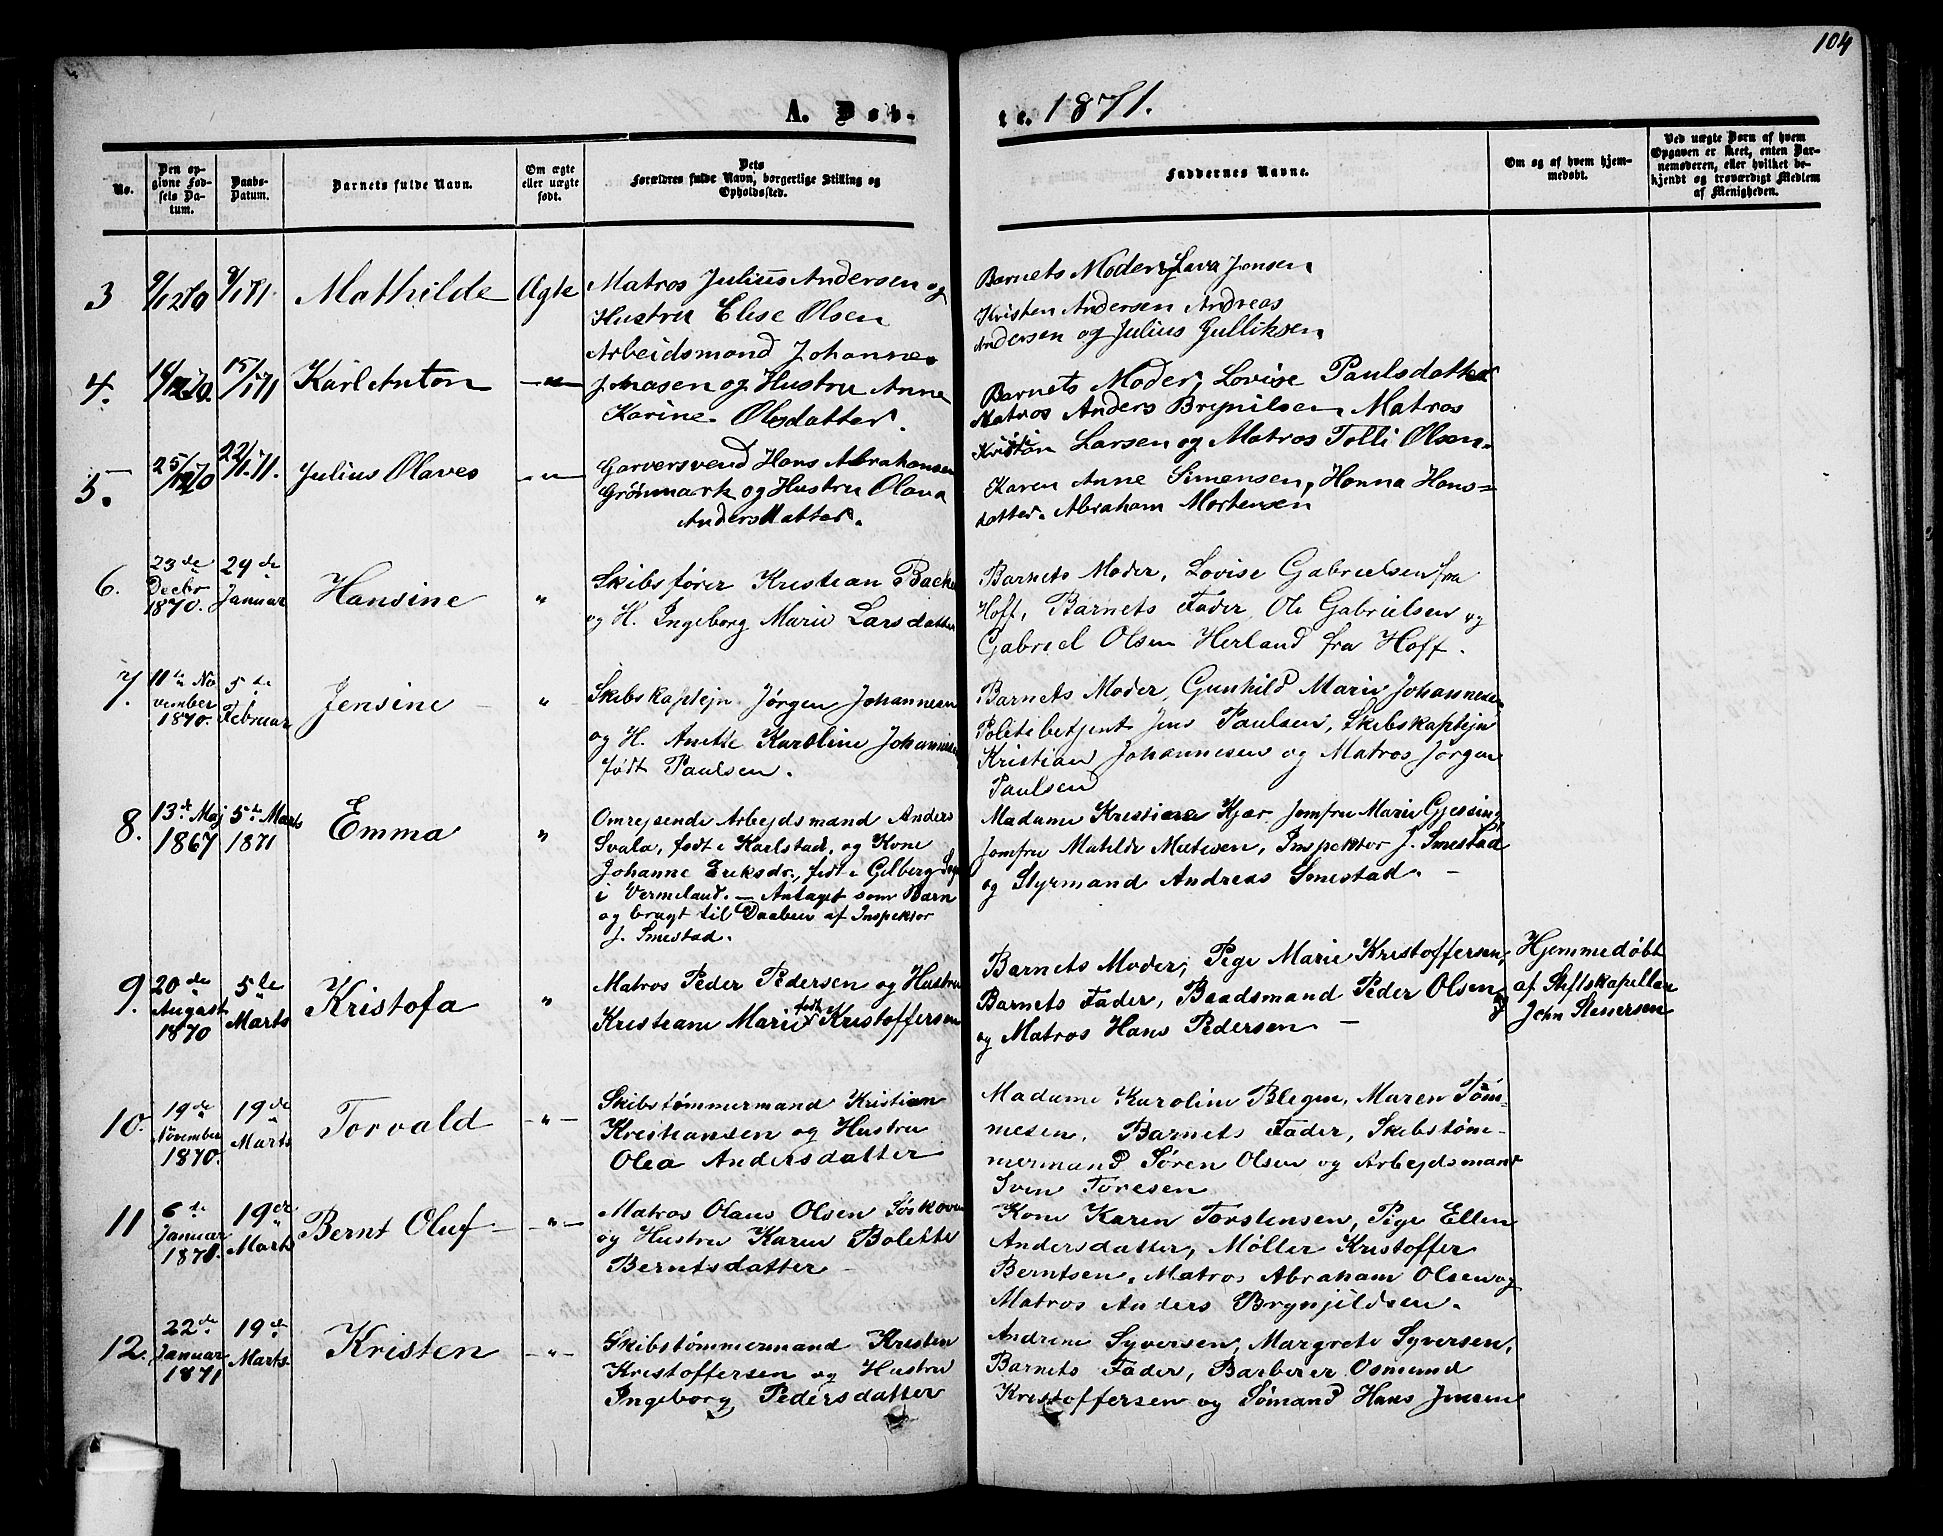 104
A. Døbte. 1871.
No.
Den opgivne Fødsels Datum.
Daabs-Datum.
Barnets fulde Navn.
Om ægte eller uægte født.
Dets Forældres fulde Navn, borgerlige Stilling og Opholdssted.
Faddernes Navne.
Om og af hvem hjemmedøbt.
Ved uægte Børn af hvem Opgaven er skeet, enten Barnemoderen, eller hvilket bekjendt og troværdigt Medlem af Menigheden.
3
9/12 70
8/1 71.
Mathilde
Ægte
Matros Julius Andersen og
Hustru Elise Olsen
Barnets Moder, Lava Jensen
Kristen Andersen Andreas
Andersen og Julius Gulliksen.
4.
/12 70.
15/1 71
Karl Anton
—"—
Arbeidsmand Johannes
Johnasen og Hustru Anne
Karine Olsdatter.
Barnets Moder, Lovise Paulsdatter
Matros Anders Brynilsen Matros
Kristian Larsen og Matros Tolli Olsen.
5.
25/12 70
22/1. 71.
Julius Olaves
—"—
Garversvend Hans Abrahamsen
Grönmark og Hustru Olava
Andersdatter.
Karen Anne Simensen, Hanna Hans=
datter. Abraham Mortensen
6.
23de
Decbr
1870.
29de
Januar
Hansine
"
Skibsfører Kristian Backe
og H. Ingeborg Marie Larsdatter
Barnets Moder, Lovise Gabrielsen fra
Hoff, Barnets Fader, Ole Gabrielsen og
Gabriel Olsen Herland fra Hoff.
7.
11te No
vember
1870.
5te
Februar
Jensine
"
Skibskaptejn Jørgen Johannesen
og H. Anette Karoline Johannesen
født Paulsen.
Barnets Moder, Gunhild Marie Johannesen
Politibetjent Jens Paulsen, Skibskaptejn
Kristian Johannesen og Matros Jørgen
Paulsen
8.
13de Maj
1867
5te Marts
1871
Emma
"
Omrejsende Arbejdsmand Anders
Svala, født i Karlstad, og Kone
Johanne Eriksdr., født i Gilberg Sogn
i Vermeland. — Antaget som Barn
og bragt til Daaben af Inspektør
J. Smestad.
Madame Kristiane Kjær, Jomfru Marie Gjessing,
Jomfru Matilde Mathisen, Inspektør J. Smestad
og Styrmand Andreas Smestad. —
9.
20de
August
1870
5te
Marts
Kristofa
"
Matros Peder Pedersen og Hustru
Kristiane Marie født Kristoffersen
Barnets Moder, Pige Marie Kristoffersen,
Barnets Fader, Baadsmand Peder Olsen
og Matros Hans Pedersen —
Hjemmedøbt
af Stiftskapellan
John Stenersen
10.
19de
November
1870.
19de
Marts
Torvald
—"—
Skibstømmermand Kristian
Kristiansen og Hustru
Olea Andersdatter
Madame Karoline Blegen, Maren Tøm-
mesen, Barnets Fader, Skibstøm-
mermand Søren Olsen og Arbejdsmand
Sven Toresen
11
6te
Januar
1871.
19de
Marts
Bernt Oluf
—"—
Matros Olaus Olsen Søskoven
og Hustru Karen Bolette
Berntsdatter —
Kone Karen Torstensen, Pige Ellen
Andersdatter, Møller Kristoffer
Berntsen, Matros Abraham Olsen og
Matros Anders Brynjildsen.
12.
22de
Januar
1871
19de
Marts
Kristen
—"—
Skibstømmermand Kristen
Kristoffersen og Hustru
Ingeborg Pedersdatter
Andrine Syversen, Margrete Syversen,
Barnets Fader, Barberer Osmund
Kristoffersen og Sømand Hans Jensen